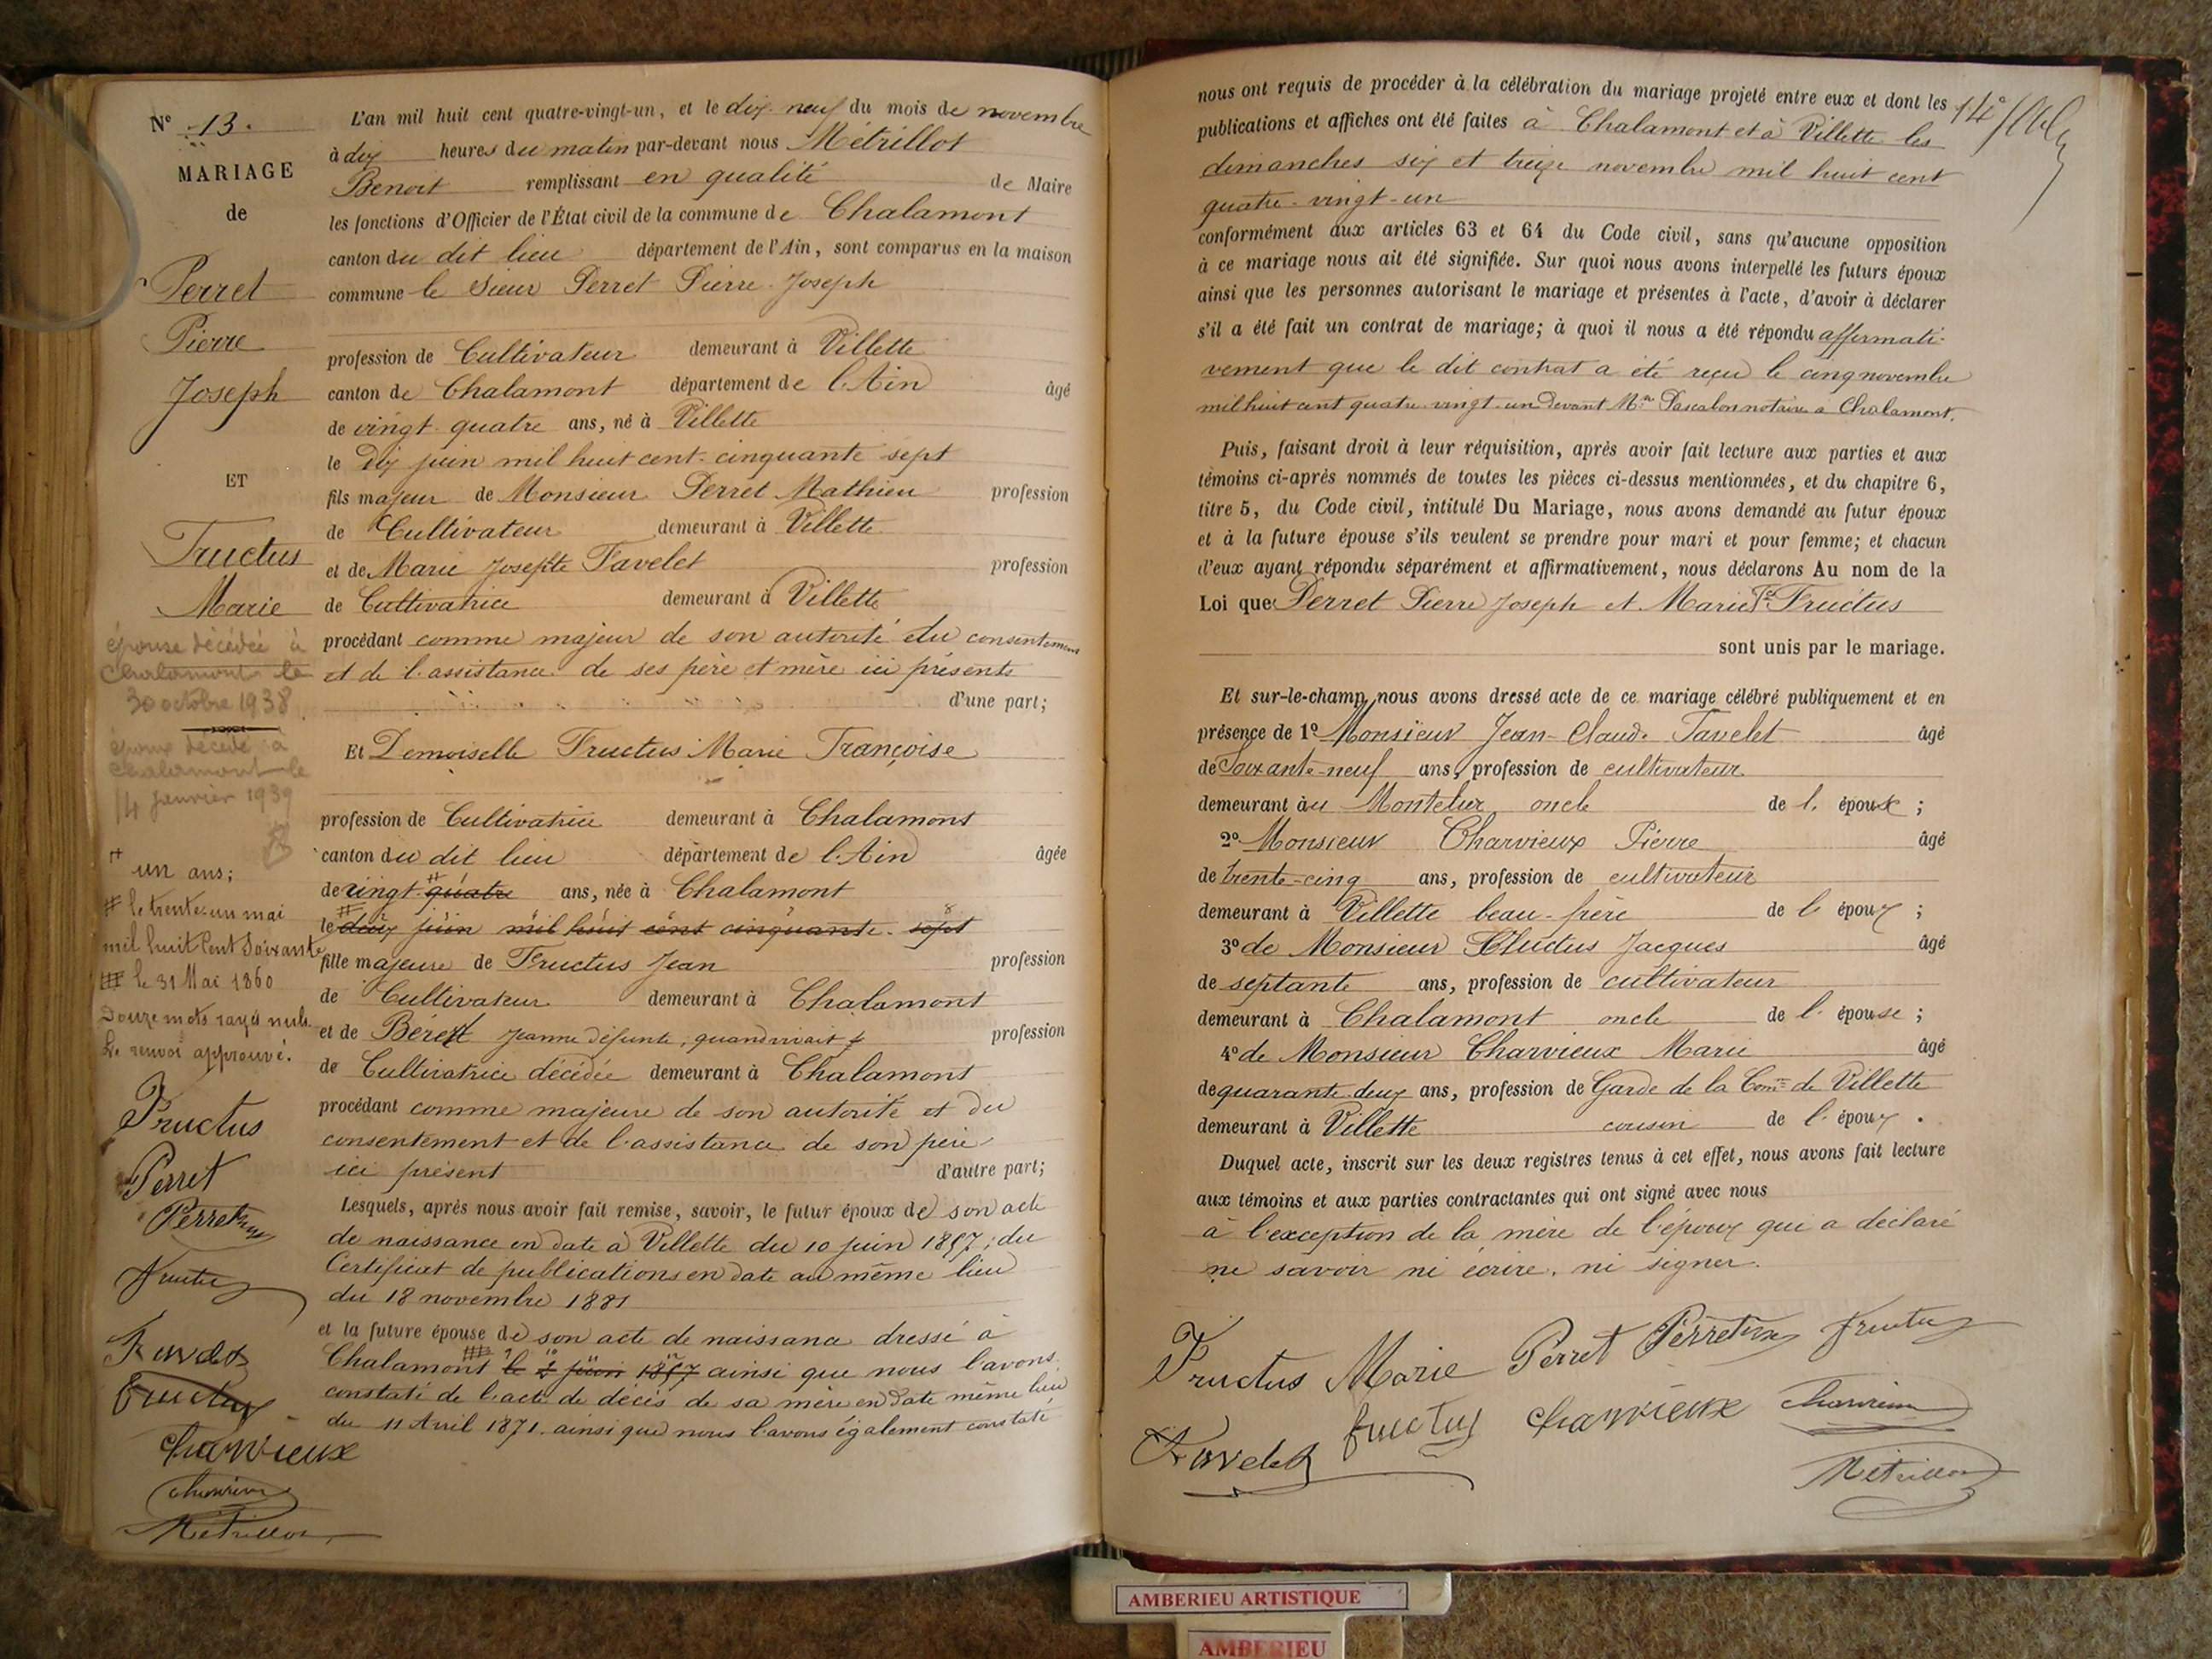 N° 13.
MARIAGE
de
Perret
Pierre
Joseph
ET
Fructus
Marie
épouse décédée à
Chalamont le
30 octobre 1938
époux décédé à
Chalamont le
14 janvier 1939
un ans;
# le trente-un mai
mil huit Cent Soixante
## le 31 Mai 1860
Douze mots rayés nuls.
renvoi approuvé.
Fructus
Perret
Perret
Charvieux
Métrillot
L'an mil huit cent quatre-vingt-un, et le dix-neuf du mois de novembre
à dix heures du matin par-devant nous Métrillot
Benoit remplissant en qualité de Maire
les fonctions d'Officier de l'État civil de la commune de Chalamont
canton du dit lieu département de l'Ain, sont comparus en la maison
commune le Sieur Perret Pierre Joseph
profession de Cultivateur demeurant à Villette
canton de Chalamont département de l'Ain âgé
de vingt-quatre ans, né à Villette
le dix juin mil huit cent cinquante sept
fils majeur de Monsieur Perret Mathieu profession
de Cultivateur demeurant à Villette
et de Marie Josephte Favelet profession
de Cultivatrice demeurant à Villette
procédant comme majeur de son autorité et du consentement
et de l'assistance de ses père et mère ici présents
d'une part;
Et Demoiselle Fructus Marie Françoise
profession de Cultivatrice demeurant à Chalamont
canton du dit lieu département de l'Ain âgée
de vingt quatre ans, née à Chalamont
le dix juin mil huit cent cinquante-sept
fille majeure de Fructus Jean profession
de Cultivateur demeurant à Chalamont
et de Jeanne défunte, quand vivait profession
de Cultivatrice décédée demeurant à Chalamont
procédant comme majeure de son autorité et du
consentement et de l'assistance de son père
ici présent d'autre part;
Lesquels, après nous avoir fait remise, savoir, le futur époux de son acte
de naissance en date à Villette du 10 juin 1857; du
Certificat de publications en date au même lieu
du 18 novembre 1881
et la future épouse de son acte de naissance dressé à
Chalamont le juin 1857 ainsi que nous l'avons
constaté de l'acte de décès de sa mère en date même lieu
du 11 Avril 1871. ainsi que nous l'avons également constaté
nous ont requis de procéder à la célébration du mariage projeté entre eux et dont les
publications et affiches ont été faites à Chalamont et à Villette les
dimanches six et treize novembre mil huit cent
quatre-vingt-un
conformément aux articles 63 et 64 du Code civil, sans qu'aucune opposition
à ce mariage nous ait été signifiée. Sur quoi nous avons interpellé les futurs époux
ainsi que les personnes autorisant le mariage et présentes à l'acte, d'avoir à déclarer
s'il a été fait un contrat de mariage; à quoi il nous a été répondu affirmati-
vement que le dit contrat a été reçu le cinq novembre
mil huit cent quatre-vingt-un devant Me Pascalon notaire a Chalamont.
Puis, faisant droit à leur réquisition, après avoir fait lecture aux parties et aux
témoins ci-après nommés de toutes les pièces ci-dessus mentionnées, et du chapitre 6,
titre 5, du Code civil, intitulé Du Mariage, nous avons demandé au futur époux
et à la future épouse s'ils veulent se prendre pour mari et pour femme; et chacun
d'eux ayant répondu séparément et affirmativement, nous déclarons Au nom de la
Loi que Perret Pierre Joseph et Marie Fse Fructus
sont unis par le mariage.
Et sur-le-champ nous avons dressé acte de ce mariage célébré publiquement et en
présence de 1° Monsieur Jean-Claude Favelet âgé
de Soixante-neuf ans, profession de cultivateur
demeurant au Montelier oncle de l'époux;
2° Monsieur Charvieux Pierre âgé
de trente-cinq ans, profession de cultivateur
demeurant à Villette beau-frère de l'époux;
3° de Monsieur Fructus Jacques âgé
de septante ans, profession de cultivateur
demeurant à Chalamont oncle de l'épouse;
4° de Monsieur Charvieux Marie âgé
de quarante-deux ans, profession de Garde de la Comne de Villette
demeurant à Villette cousin de l'époux.
Duquel acte, inscrit sur les deux registres tenus à cet effet, nous avons fait lecture
aux témoins et aux parties contractantes qui ont signé avec nous
à l'exception de la mère de l'époux qui a déclaré
ne savoir ni écrire, ni signer.
Fructus Marie Perret
fructus Charvieux
Métrillot
AMBERIEU ARTISTIQUE
AMBERIEU